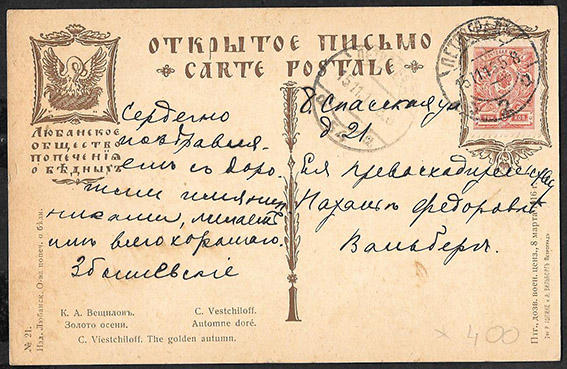 ОТКРЫТОЕ ПИСЬМО
CARTE POSTALE
Любанское
общество
попеченія
о бѣдныхъ
Сердечно
поздравля
емъ съ доро
гими имянин
никами, желаемъ
имъ всего хорошаго.
Збышевскіе
8 Спасская ул
д 21
Ея превосходительству
Федоровнѣ
Вальбергъ
К. А. Вещиловъ.
Золото осени.
C. Vestchiloff.
Automne doré.
C. Viestchiloff. The golden autumn.
№ 21.
Изд. Любанск. О-ва попеч. о бѣдн.
Птг., дозв. воен. ценз., 8 марта 1916 г.
× 400